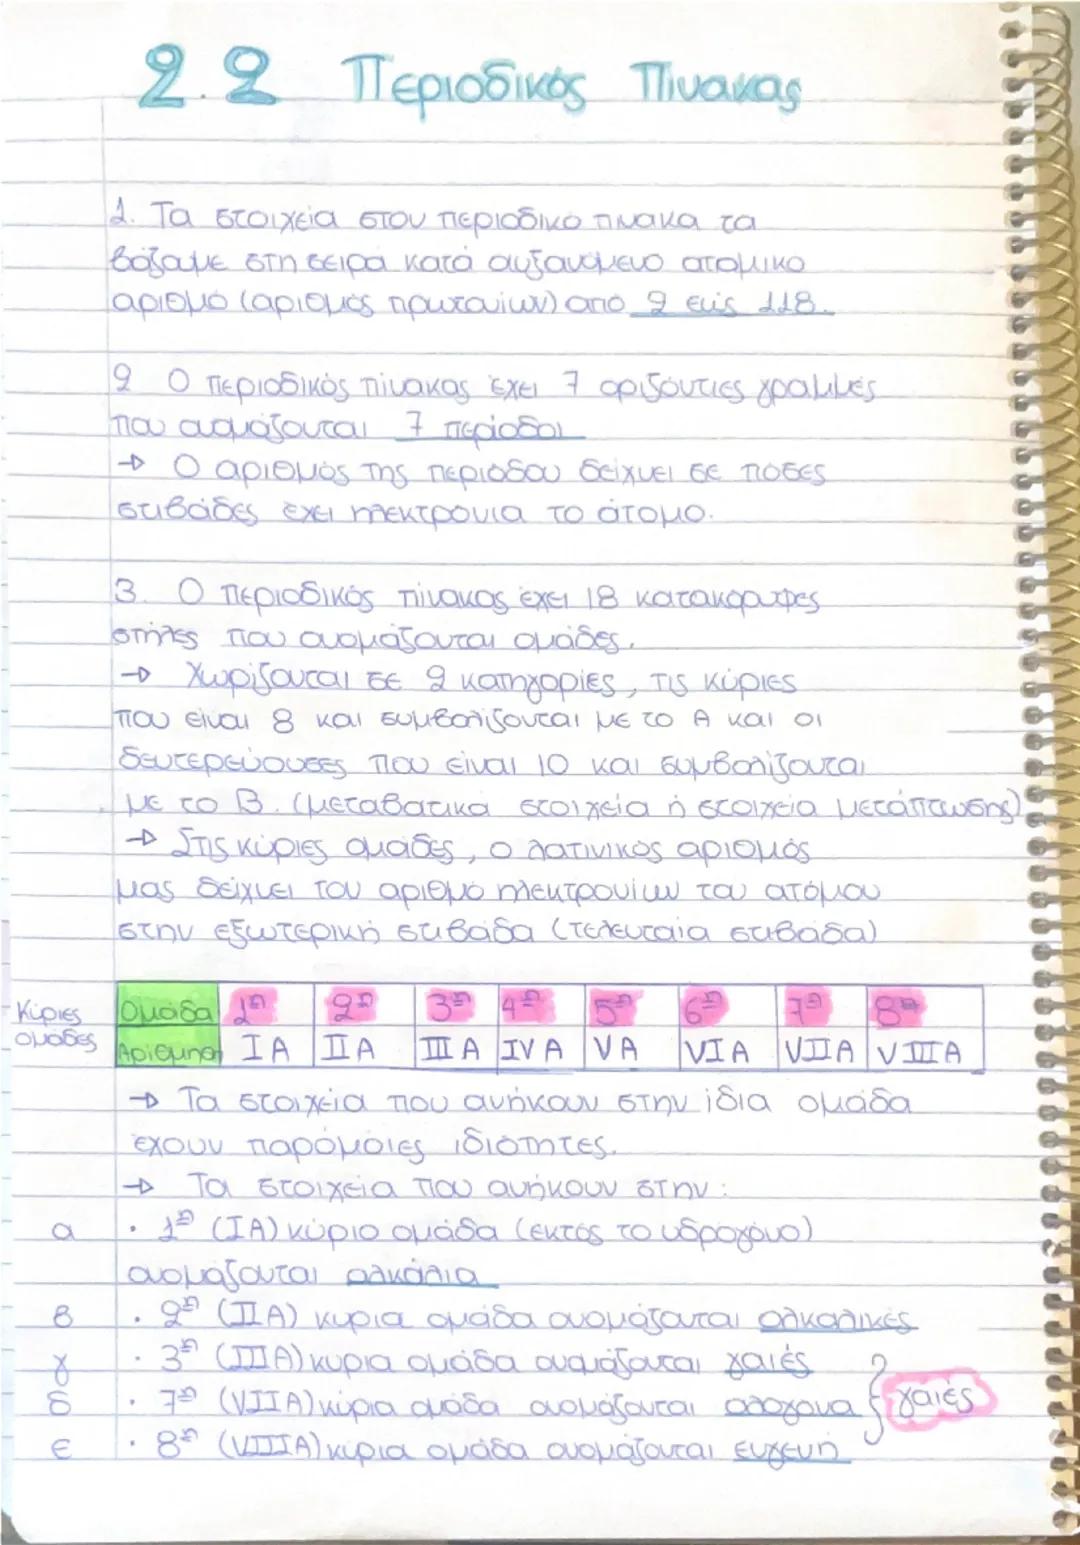 2.2 Περιοδικός Πίνακας
1. Τα στοιχεία στον περιοδικό πίνακα τα
βάζουμε στη σειρά κατά αυξανόμενο ατομικο
αριθμό (αριθμός πρωτονίων) από 1 εώς 118.
2 Ο περιοδικός πίνακας έχει 7 οριζόντιες γραμμές
που ονομάζονται 7 περίοδοι
→ Ο αριθμός της περιόδου δείχνει σε πόσες
στιβάδες έχει ηλεκτρόνια το άτομο.
3. Ο περιοδικός πίνακας έχει 18 κατακόρυφες
στήλες που ονομάζονται ομάδες.
→ Χωρίζονται σε 2 κατηγορίες, τις κύριες
που είναι 8 και συμβολίζονται με το Α και οι
δευτερεύουσες που είναι 10 και συμβολίζονται
με το Β. (μεταβατικά στοιχεία ή στοιχεία μετάπτωσης)
→ Στις κύριες ομάδες, ο λατινικός αριθμός
μας δείχνει τον αριθμό ηλεκτρονίων του ατόμου
στην εξωτερική στιβάδα (τελευταία στιβάδα)
Κύριες Ομάδα 1η 2η 3η 4η 5η 6η 7η 8η
ομάδες Αρίθμηση IA IIA IIIA IVA VA VIA VIIA VIIIA
→ Τα στοιχεία που ανήκουν στην ίδια ομάδα
έχουν παρόμοιες ιδιότητες.
→ Τα στοιχεία που ανήκουν στην:
α • 1η (IA) κύριο ομάδα (εκτός το υδρογόνο)
ονομάζονται αλκάλια
β • 2η (IIA) κυρια ομάδα ονομάζονται αλκαλικές
γ • 3η (IIIA) κυρια ομάδα ονομάζονται γαιές
δ • 7η (VIIA) κύρια ομάδα ονομάζονται αλογονα } γαιές
ε • 8η (VIIIA) κύρια ομάδα ονομάζονται ευγενή